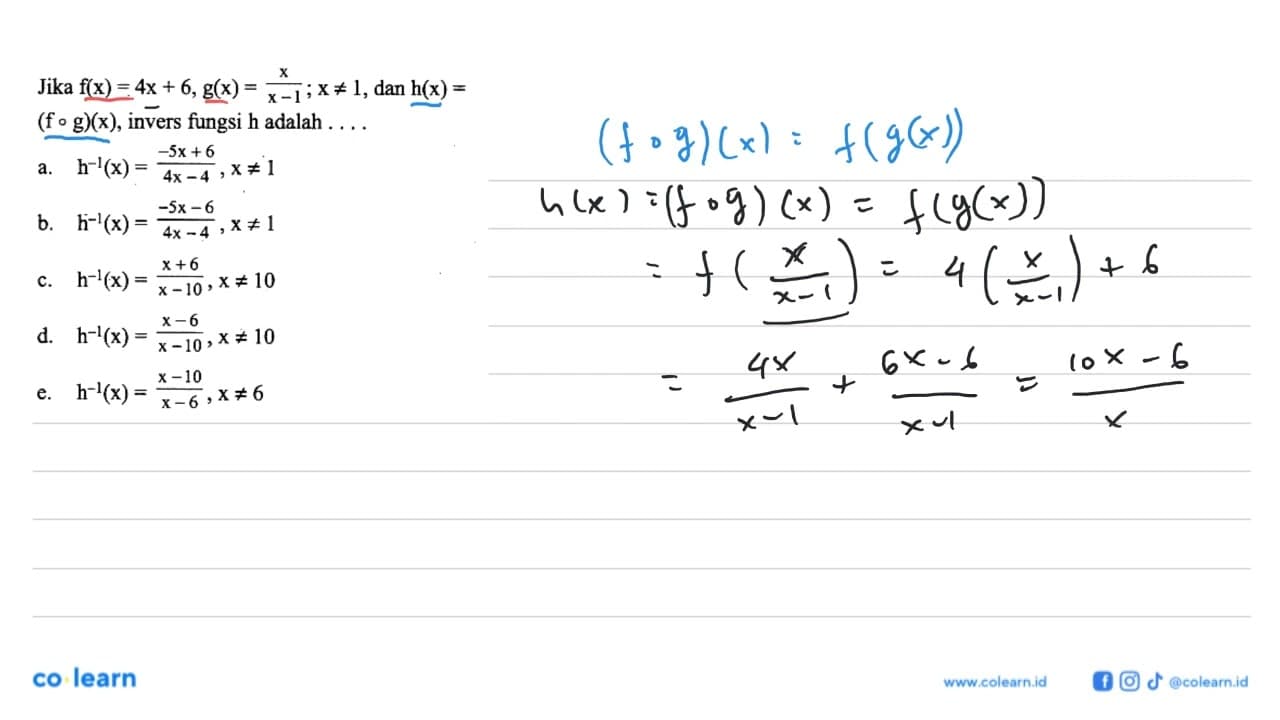 Jika f(x) = 4x + 6, g(x) = x/(x – 1); x ≠ 1, dan h(x) =
(f ∘ g)(x), invers fungsi h adalah . . . .
a. h⁻¹(x) = (–5x + 6)/(4x – 4), x ≠ 1
b. h⁻¹(x) = (–5x – 6)/(4x – 4), x ≠ 1
c. h⁻¹(x) = (x + 6)/(x – 10), x ≠ 10
d. h⁻¹(x) = (x – 6)/(x – 10), x ≠ 10
e. h⁻¹(x) = (x – 10)/(x – 6), x ≠ 6
(f ∘ g)(x) = f(g(x))
h(x) = (f ∘ g)(x) = f(g(x))
= f(x/(x – 1)) = 4(x/(x – 1)) + 6
= 4x/(x – 1) + (6x – 6)/(x – 1) = (10x – 6)/x
co learn
www.colearn.id
@colearn.id